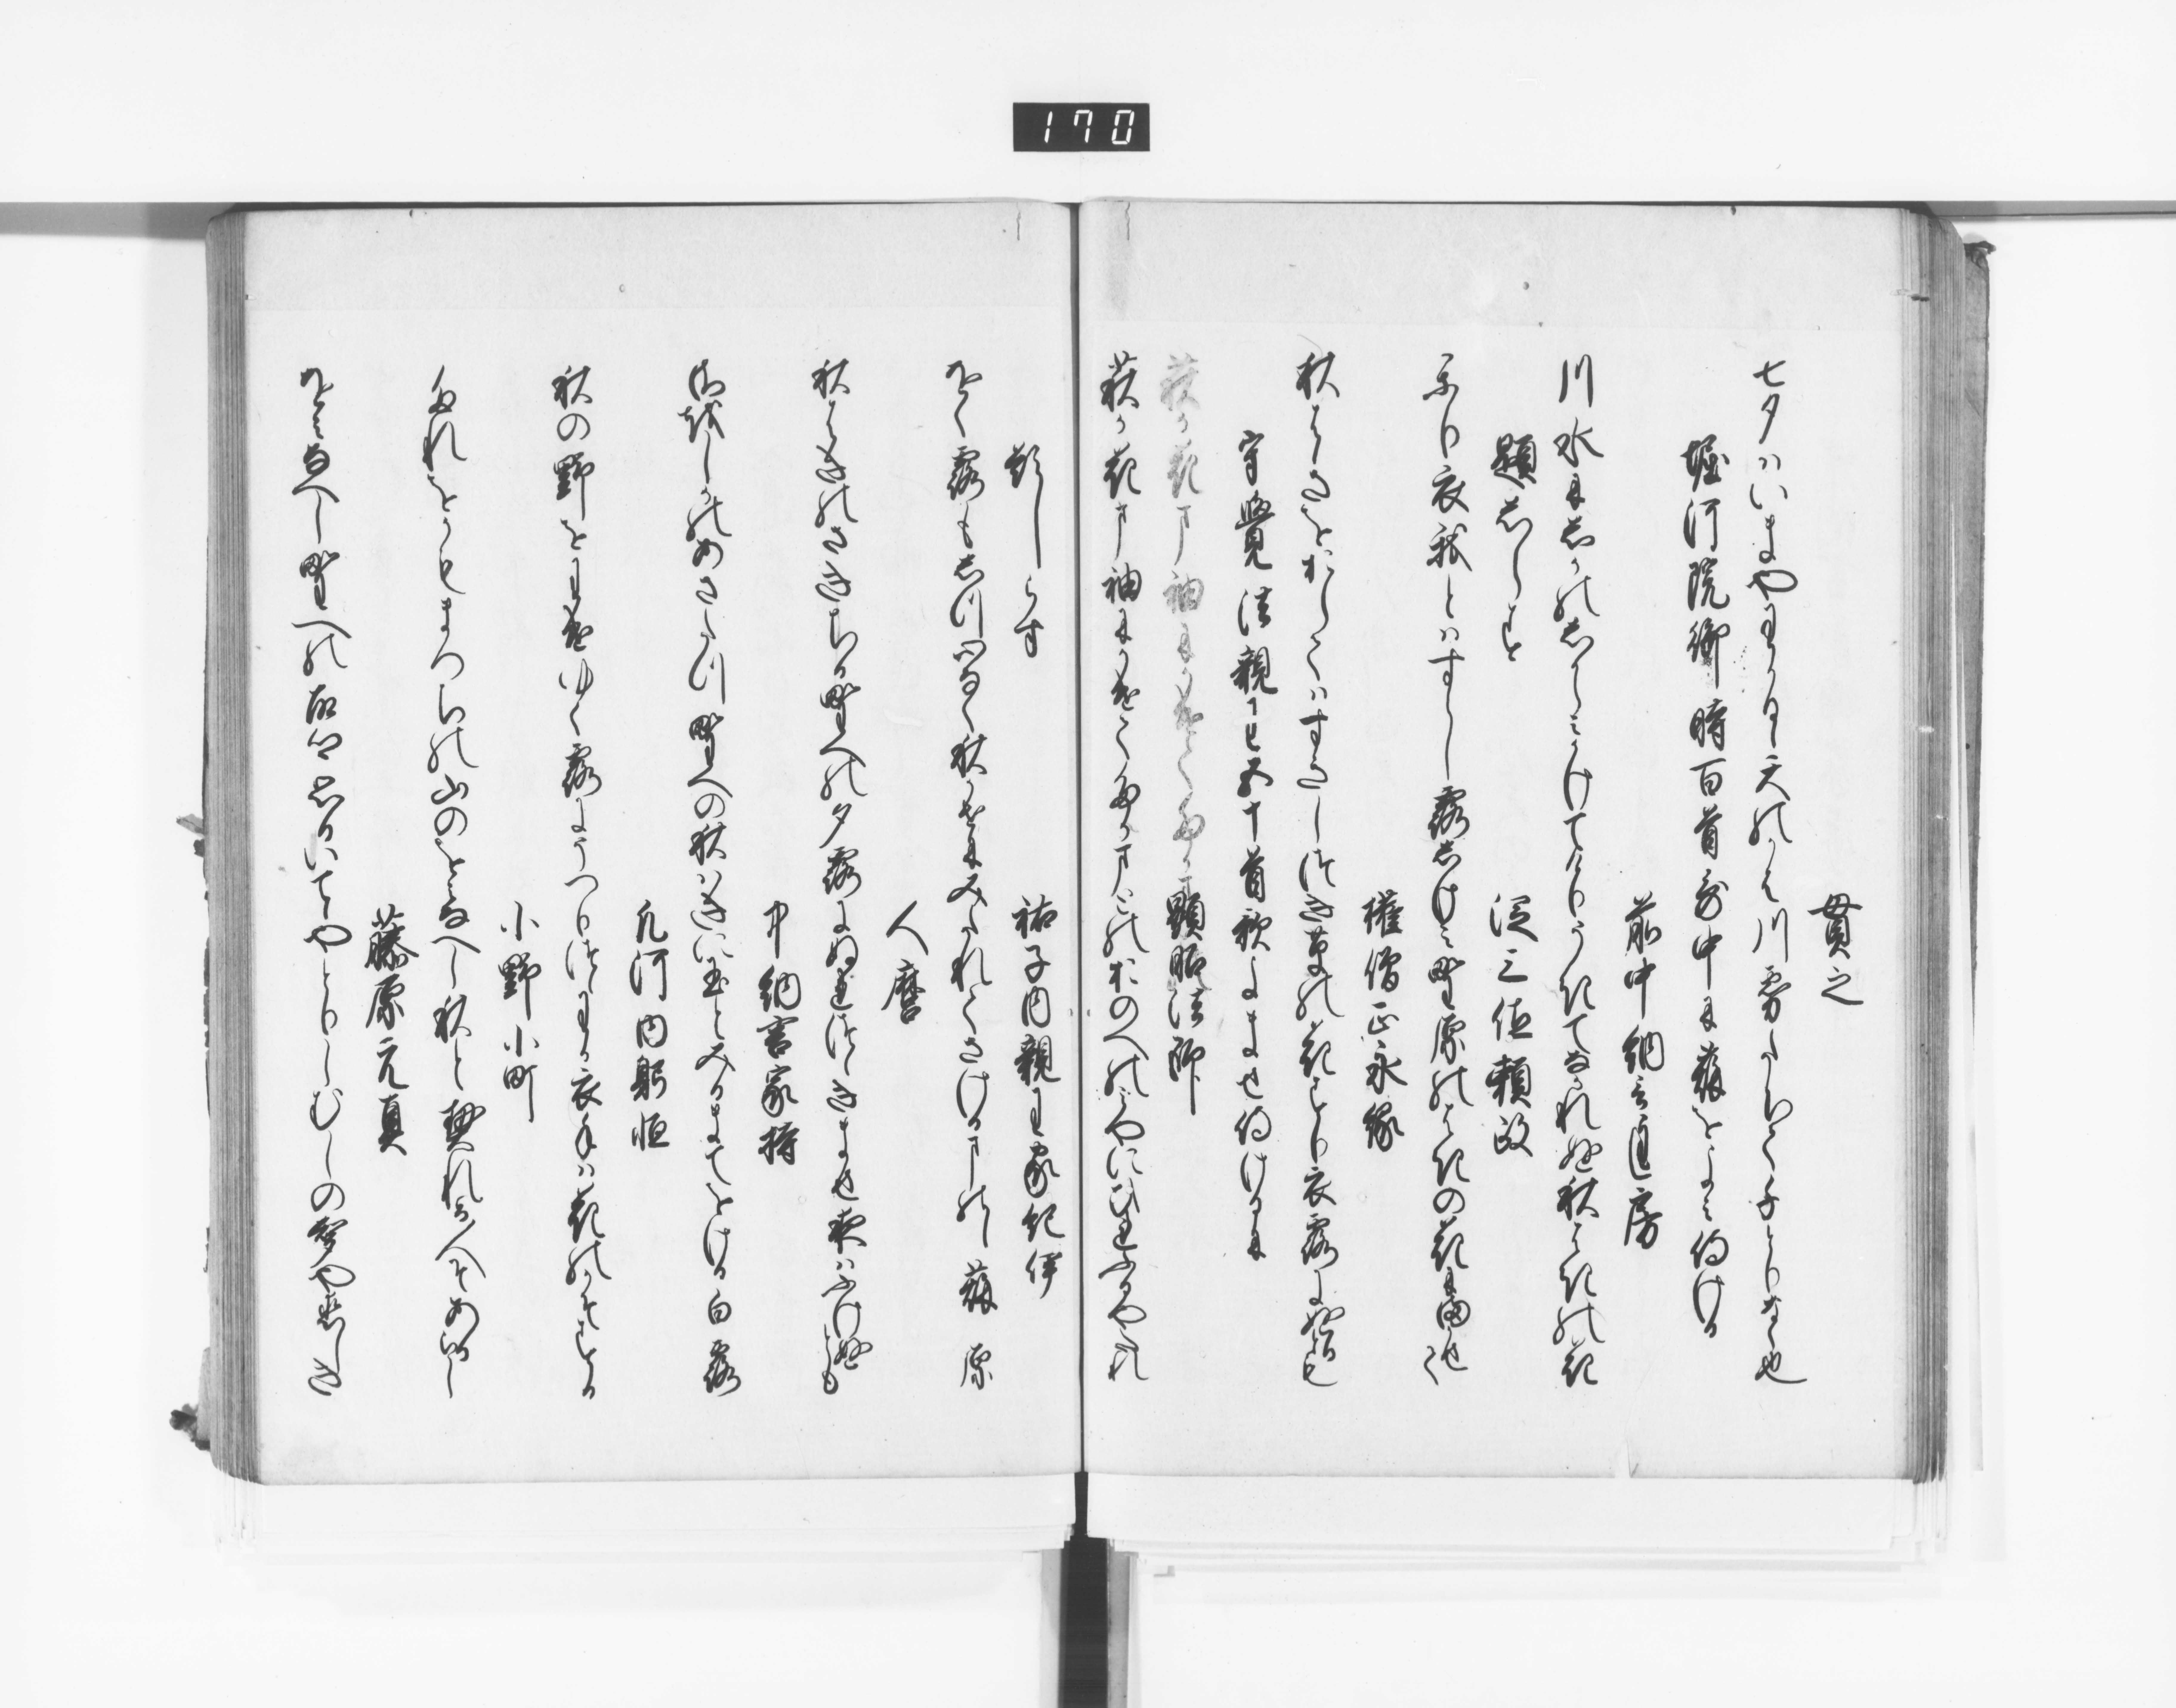 170
貫之
七夕ハいまやわかるゝ天の川川霧たちて千とりなく也
堀河院御時百首哥中に萩をよみ侍ける
前中納言匡房
川水に志かのしからみかけてけりうきてなかれぬ秋はきの花
題しらす
従三位頼政
かり衣我とハすらし露しけき野原のはきの花にまかせて
権僧正永縁
秋はきをおらてハすきし月草の花すり衣露にぬるとも
守覺法親王五十首歌よませ侍けるに
顕昭法師
萩か花ま袖にかけてたかま
萩か花ま袖にかけてたかまとのおのへの宮にひれふるやたれ
題しらす
祐子内親王家紀伊
をく露もしつ心なく秋かせにみたれてさける真野の萩原
人麿
秋はきのさきちる野へのタ露にぬれつゝきませ夜ハふけぬとも
中納言家持
さを鹿のあさたつ野への秋はきに玉とみるまてをける白露
凡河内躬恒
秋の野をわけゆく露にうつりつゝわか衣手ハ花のかそする
小野小町
たれをかもまつちの山のをみなへし秋と契れる人そあるらし
藤原元真
をみなへし野へのふるさと思ひいてゝやとりしむしの聲や恋しき